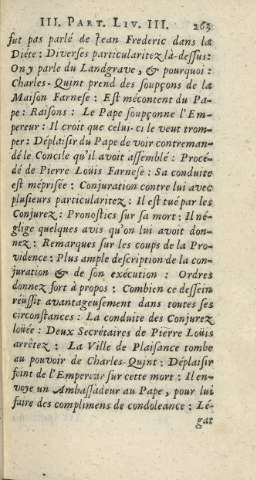 III. PART. LIV. III. 263
fut pas parlé de Jean Frederic dans la
Diéte : Diverses particularitez là-dessus:
On y parle du Landgrave, & pourquoi :
Charles-Quint prend des soupçons de la
Maison Farnese : Est mécontent du Pa-
pe : Raisons : Le Pape soupçonne l'Em-
pereur : Il croit que celui-ci le veut trom-
per : Déplaisir du Pape de voir contreman-
dé le Concile qu'il avoit assemblé : Proce-
dé de Pierre Louis Farnese : Sa conduite
est méprisée : Conjuration contre lui avec
plusieurs particularitez : Il est tué par les
Conjurez : Pronostics sur sa mort : Il né-
glige quelques avis qu'on lui avoit don-
nez : Remarques sur les coups de la Pro-
vidence : Plus ample description de la con-
juration & de son exécution : Ordres
donnez fort à propos : Combien ce dessein
réussit avantageusement dans toutes ses
circonstances : La conduite des Conjurez
louée : Deux Secrétaires de Pierre Louis
arrêtez : La Ville de Plaisance tombe
au pouvoir de Charles-Quint : Déplaisir
feint de l'Empereur sur cette mort : Il en-
voye un Ambassadeur au Pape, pour lui
faire des complimens de condoleance : Lé-
gat